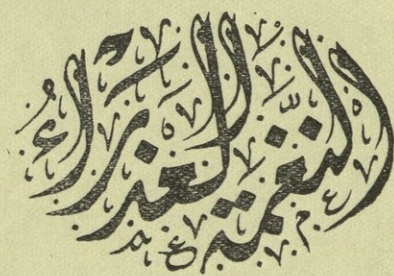 النغمة العذراء